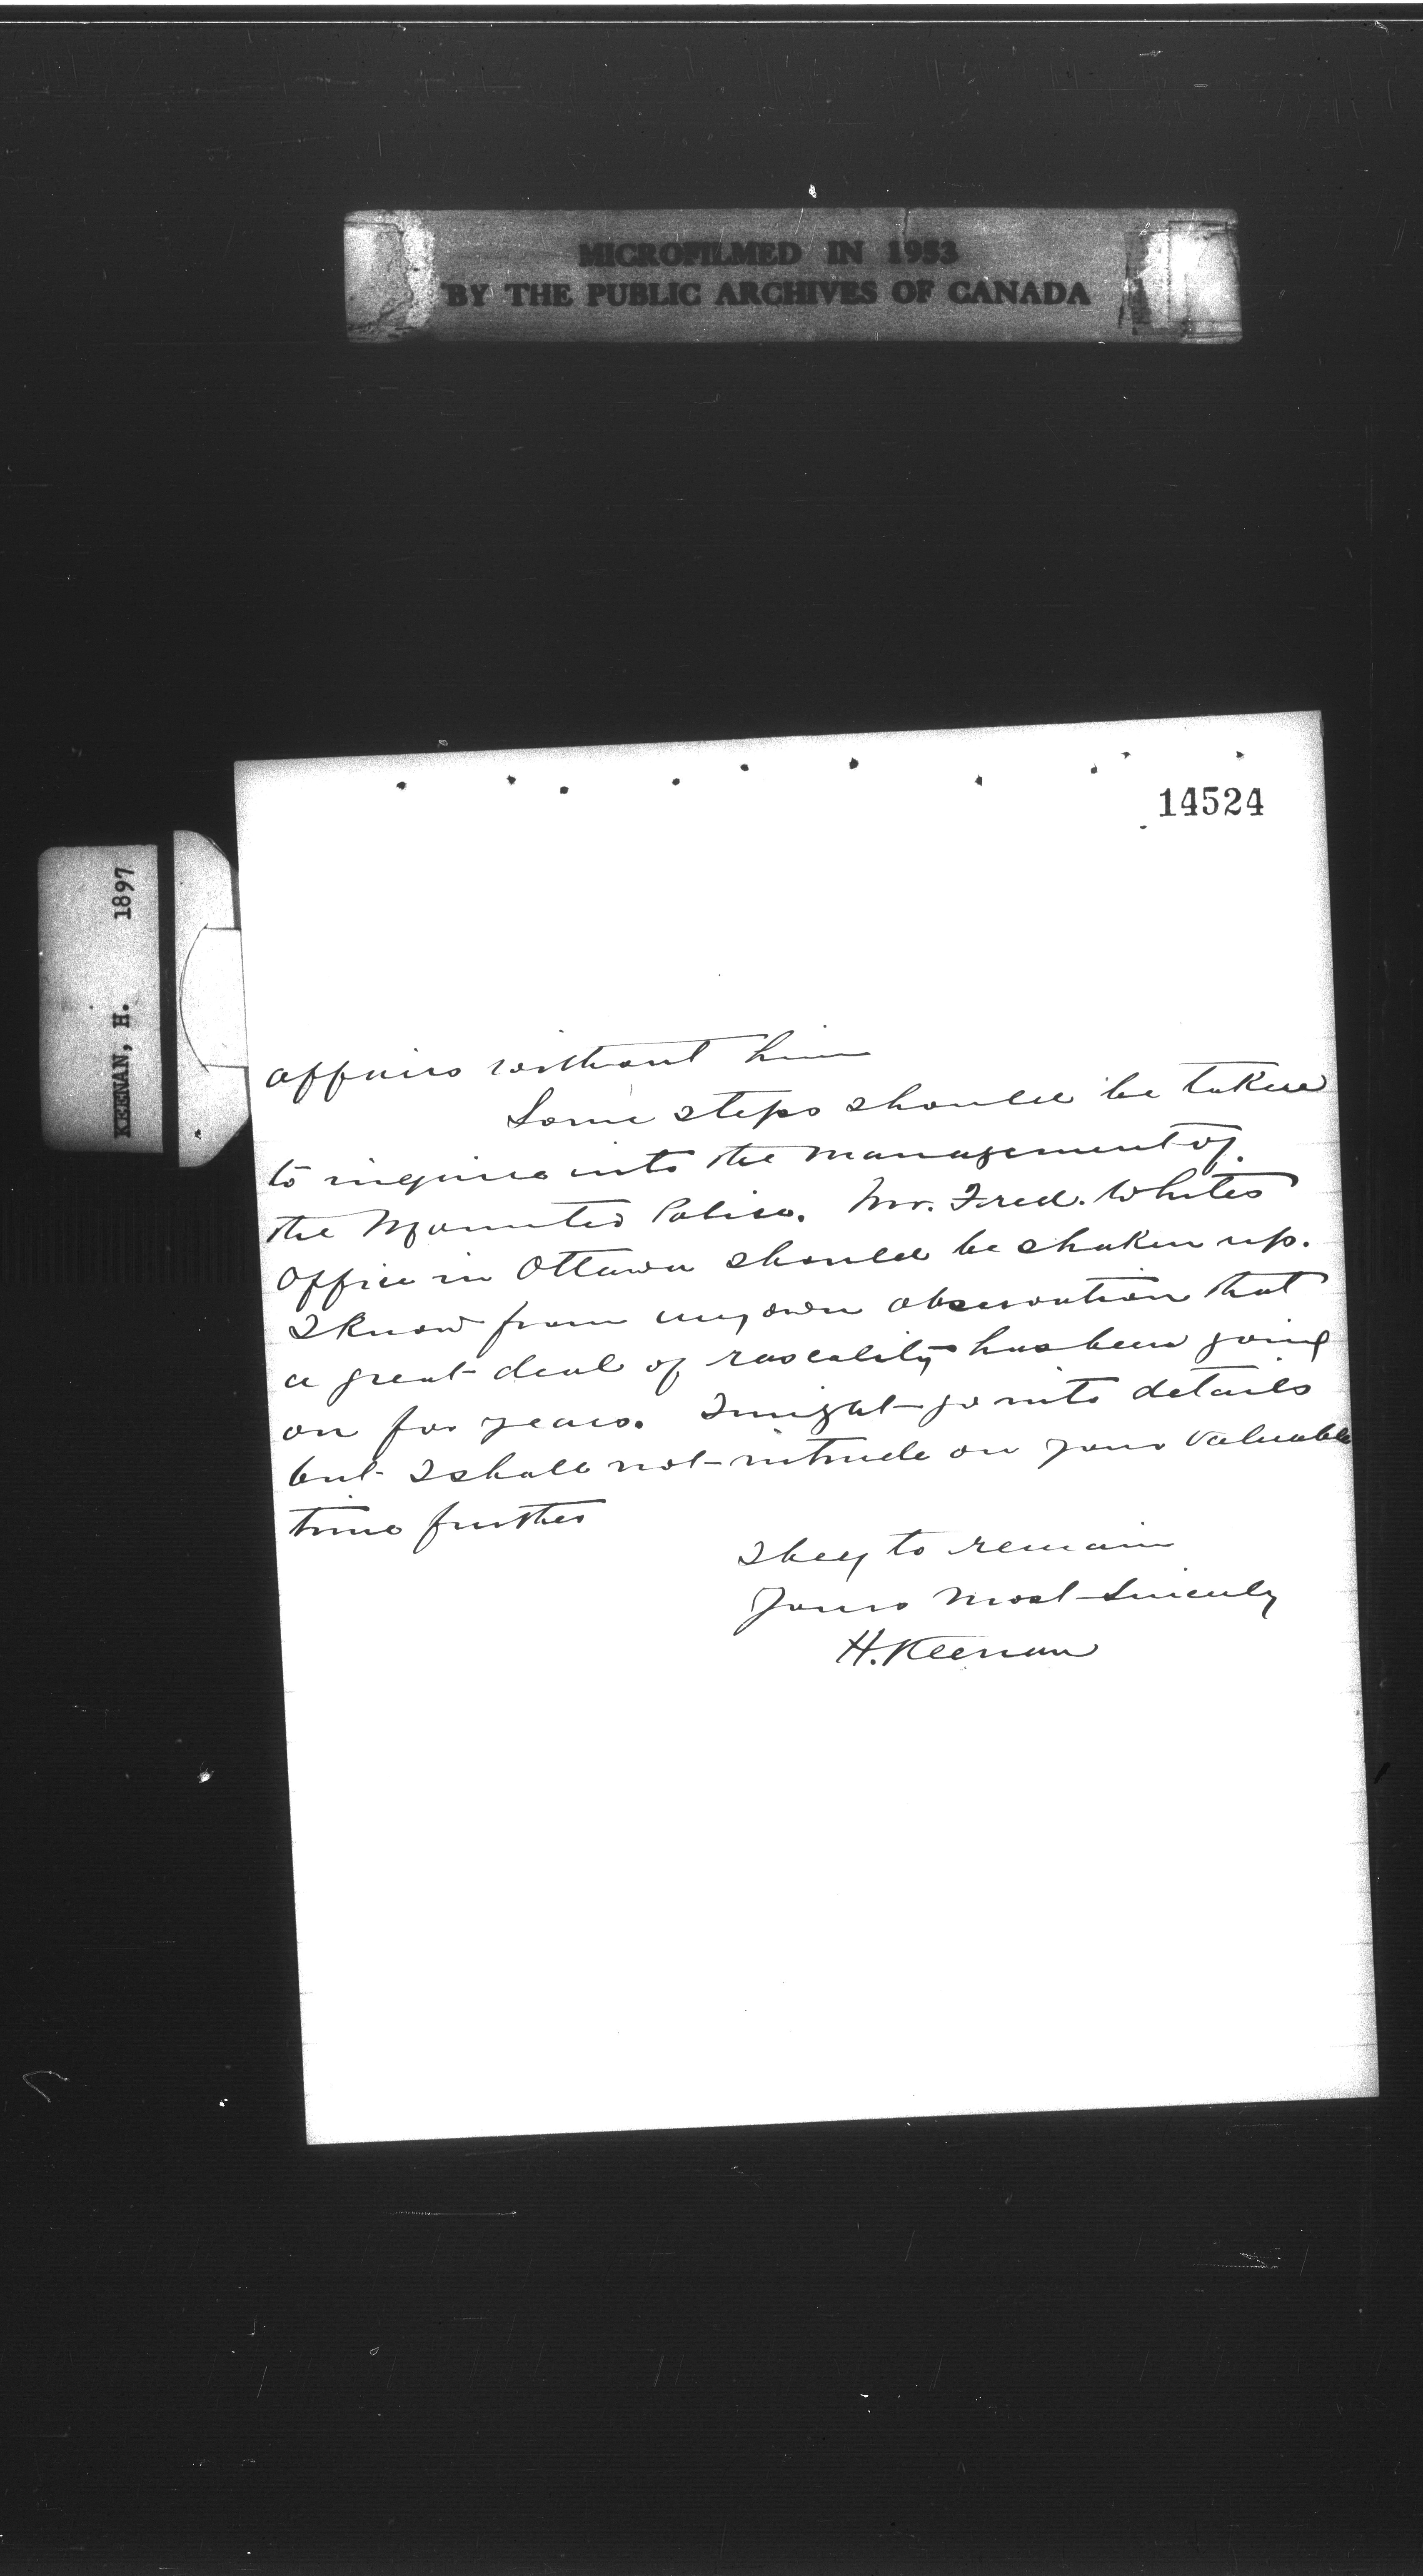 MICROFILMED IN 1953
BY THE PUBLIC ARCHIVES OF CANADA
14524
KEENAN, H. 1897
affairs without him
Some steps should be taken
to inquire into the management of
the Mounted Police. Mr. Fred. Whites
Office in Ottawa should be shaken up.
I know from my own observation that
a great deal of rascality has been going
on for years. I might go into details
but I shall not intrude on your valuable
time further
I beg to remain
Yours most sincerely
H. Keenan